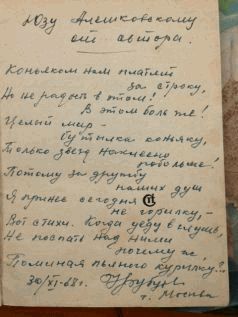 Юзу Алешковскому
от автора.
Коньяком нам платят
за строку,
Но не радость в этом!
В этом боль же!
Целый мир –
бутылка коньяку,
Только звезд нанесено
побольше!
Потому за дружбу
наших душ
Я принес сегодня
не горилку, –
Вот стихи. Когда уеду в глушь,
Не поспать над ними
почему ж,
Поминая пьяного курилку?..
30/XI-68г.
г. Москва